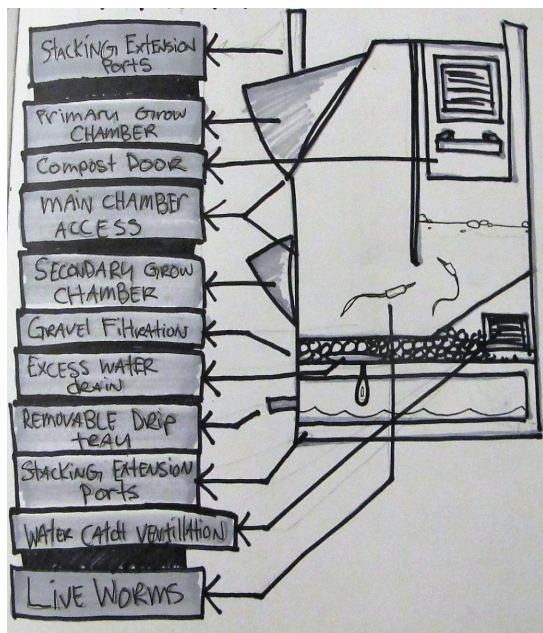 STACKING EXTENSION
PORTS
PRIMARY GROW
CHAMBER
COMPOST DOOR
MAIN CHAMBER
ACCESS
SECONDARY GROW
CHAMBER
GRAVEL FILTRATION
EXCESS WATER
DRAIN
REMOVABLE DRIP
TRAY
STACKING EXTENSION
PORTS
WATER CATCH VENTILLATION
LIVE WORMS